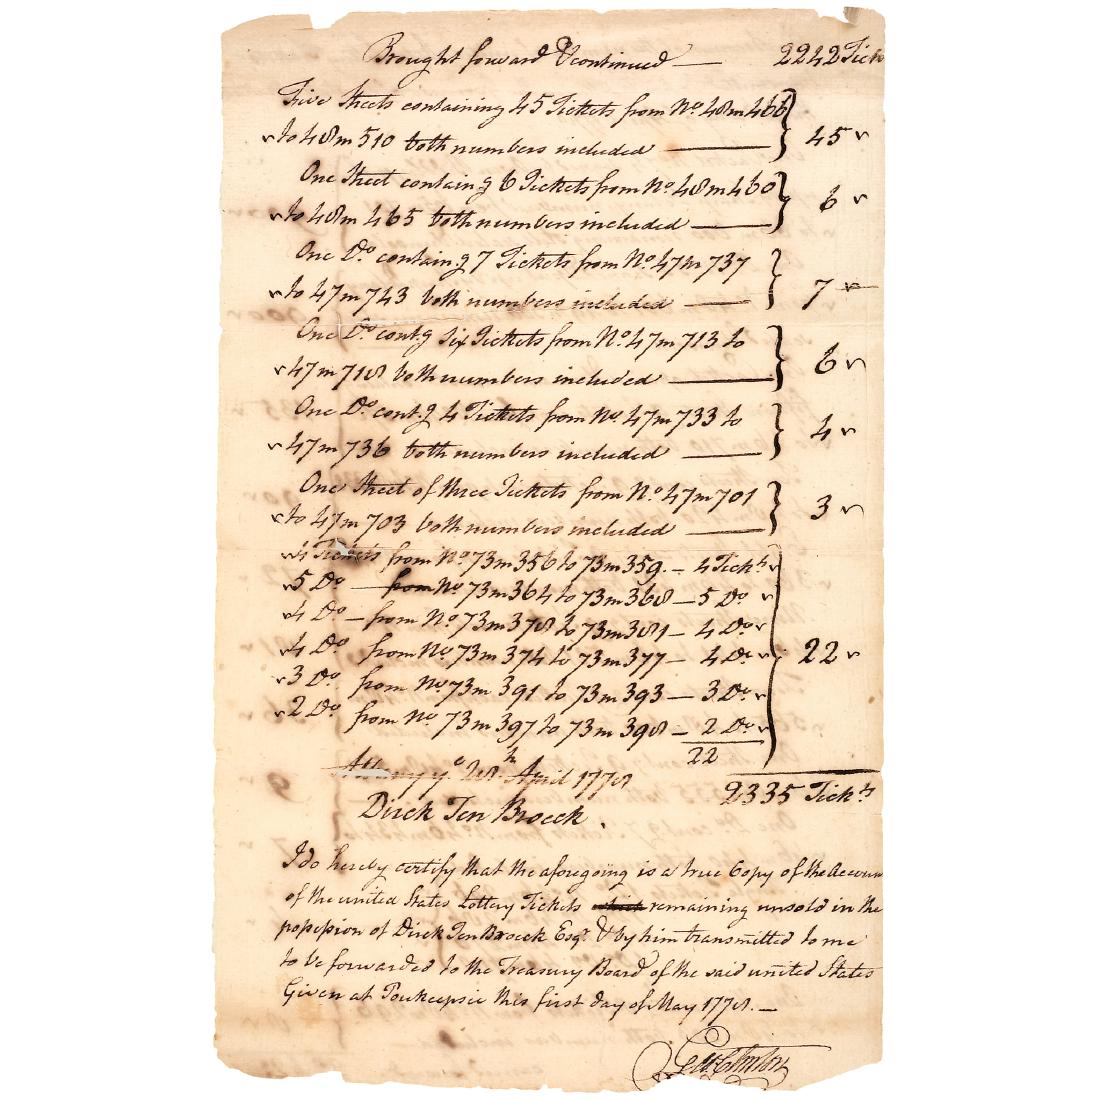 Brought forward & continued — 2242 Tick
Five Sheets containing 45 Tickets from No. 48m466
to 48m510 both numbers included — } 45
One Sheet containg 6 Tickets from No. 48m460
to 48m465 both numbers included — } 6
One Do. containg 7 Tickets from No. 47m737
to 47m743 both numbers included — } 7
One Do. contg Six Tickets from No. 47m713 to
47m718 both numbers included — } 6
One Do. contg 4 Tickets from No. 47m733 to
47m736 both numbers included — } 4
One Sheet of three Tickets from No. 47m701
to 47m703 both numbers included } 3
4 Tickets from No. 73m356 to 73m359. — 4 Tickts
5 Do — from No. 73m364 to 73m368 — 5 Do.
4 Do — from No. 73m378 to 73m381 — 4 Do.
4 Do from No. 73m374 to 73m377 — 4 Do. } 22
3 Do. from No. 73m391 to 73m393 — 3 Do.
2 Do. from No. 73m397 to 73m398 — 2 Do
22
Albany ye. 28th April 1778
2335 Tickts
Dirck Ten Broeck.
I do hereby certify that the aforegoing is a true Copy of the Accoun
of the united States Lottery Tickets remaining unsold in the
possession of Dirck Ten Broeck Esqr. & by him transmitted to me
to be forwarded to the Treasury Board of the said united States
Given at Poukeepsie this first day of May 1778. —
Geo. Clinton